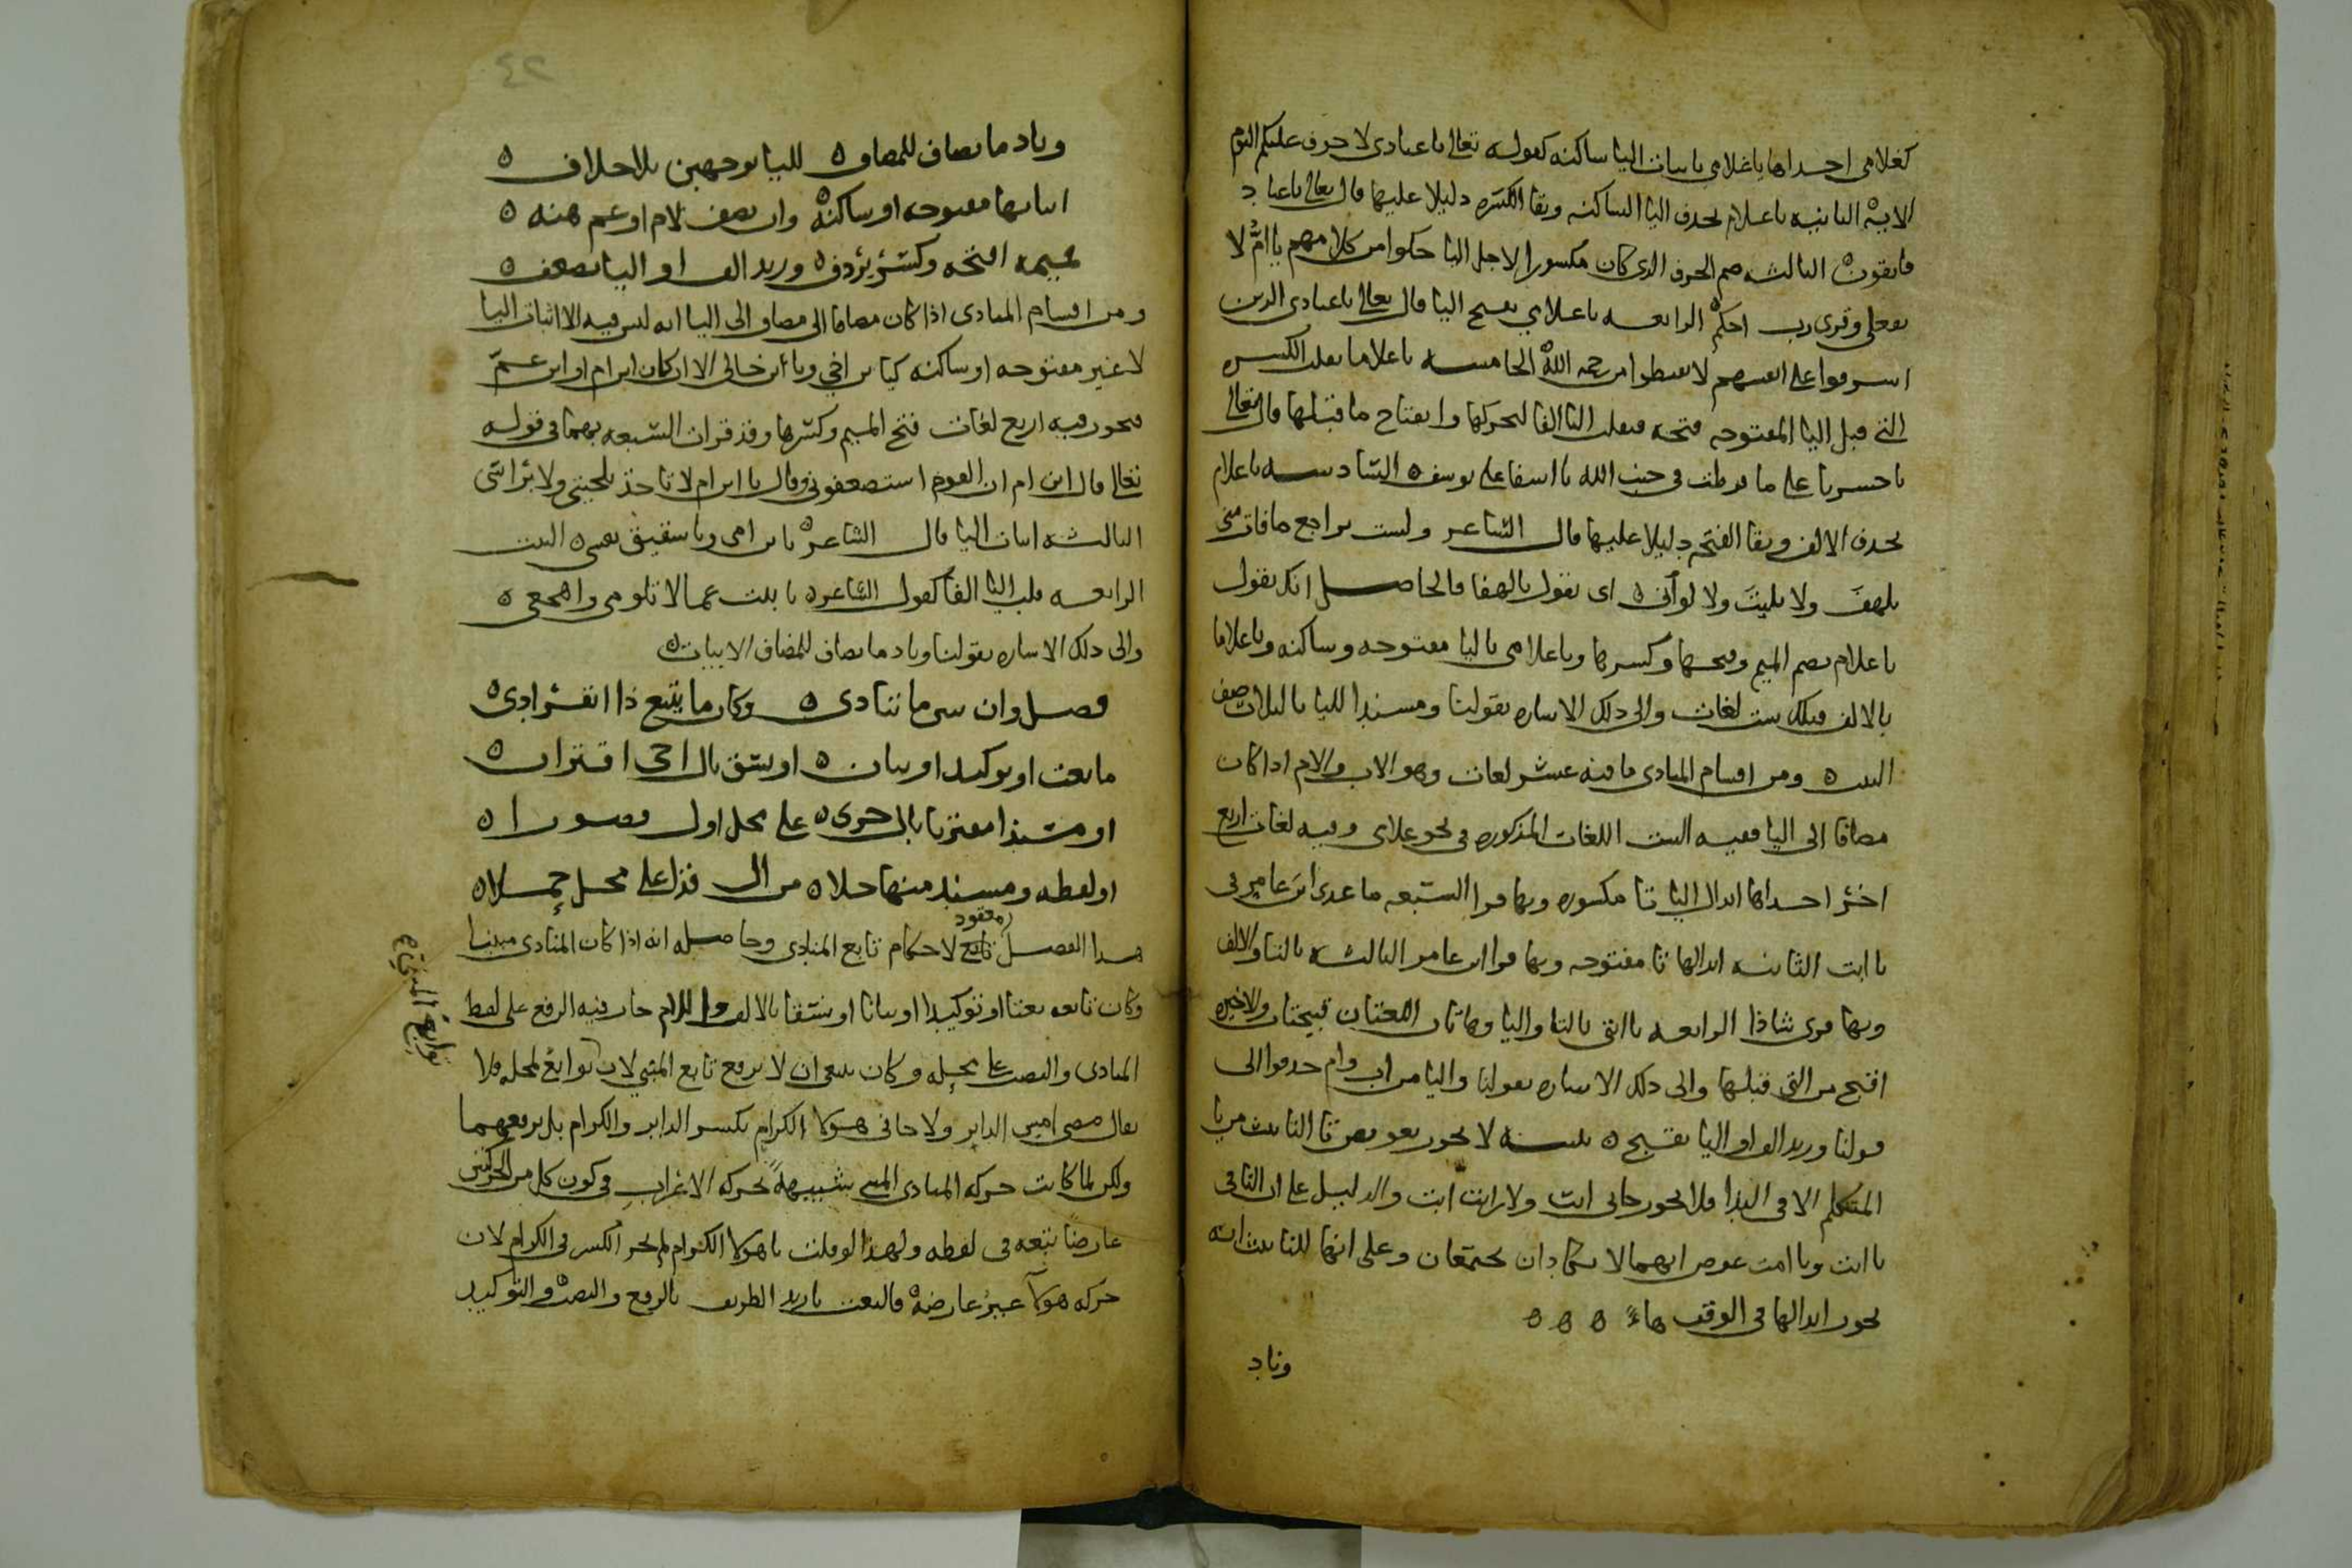 كغلامي احداها ياغلامي باثبات اليا ساكنه كقوله تعالى ياعبادي لا خوف عليكم اليوم
الايه الثانيه ياغلام بحذف اليا الساكنه وبقا الكسره دليلا عليها قال تعالى ياعباد
فاتقون الثالثه ضم الحرف الذي كان مكسورا لاجل اليا حكوا من كلامهم ياامُّ لا
تفعلي وقري رب احكم الرابعه ياغلامي بفتح اليا قال تعالى ياعبادي الذين
اسرفوا على انفسهم لا تقنطوا من رحمه الله الخامسه ياغلاما بقلب الكسره
التي قبل اليا المفتوحه فتحه فتقلب اليا الفا لتحركها وانفتاح ما قبلها قال تعالى
ياحسرتا على ما فرطت في جنب الله يااسفا على يوسف السادسه ياغلام
بحذف الالف وبقا الفتحه دليلا عليها قال الشاعر ولست براجع مافات مني
بلهفَ ولا بليتَ ولا لوأني اي بقول يالهفا فالحاصل انك تقول
ياغلام بضم الميم وفتحها وكسرها وياغلامي باليا مفتوحه وساكنه وياغلاما
بالالف فتلك ست لغات والى ذلك الاشاره بقولنا ومسندا لليا بالثلاث صف
البيت ومن اقسام المنادى ما فيه عشر لغات وهو الاب والام اذا كان
مضافا الى اليا ففيه الست اللغات المذكوره في نحو غلامي وفيه لغات اربع
اخر احداها ابدال اليا تا مكسوره وبها قرا السبعه ما عدى ابن عامر في
ياابت الثانيه ابدالها تا مفتوحه وبها قرا ابن عامر الثالثه بالتا والالف
وبها قري شاذا الرابعه ياابتي بالتا واليا وهاتان اللغتان قبيحتان والاخيره
اقبح من التي قبلها والى ذلك الاشاره بقولنا واليا من اب وام حذفوا الى
قولنا وزيد الف او اليا يقبح تنبيه لا يجوز تعويض تا التانيث من يا
المتكلم الا في الندا فلا يجوز جاني ابت ولا رايت ابت والدليل على ان التا في
ياابت وياامت عوض انهما لا يكادان يجتمعان وعلى انها للتانيث انه
يجوز ابدالها في الوقف هاء
وناد
٤٢
وناد ما يضاف للمضاف لليا بوجهين بلا خلاف
اثباتها مفتوحه او ساكنه وان يضف لام او عم هنه
لميمه افتحه وكسرٌ يردف وزيد الف او اليا يضعف
ومن اقسام المنادى اذا كان مضافا الى مضاف الى اليا انه ليس فيه الا اثبات اليا
لا غير مفتوحه او ساكنه كيابن اخي ويا ابن خالي الا ان كان ابن ام او ابن عمّ
فيجوز فيه اربع لغات فتح الميم وكسرها وقد قرات السبعه بهما في قوله
تعالى قال ابن ام ان القوم استضعفوني وقال يا ابن ام لا تاخذ بلحيتي ولا براسي
الثالثه اثبات اليا قال الشاعر يابن امي وياشقيق نفسي البيت
الرابعه قلب اليا الفا كقول الشاعر يابنت عما لا تلومي واهجعي
والى ذلك الاشاره بقولنا وناد ما يضاف للمضاف الابيات
فصل وان بني ما تنادى وكان ما يتبع ذا انفرادى
ما بعت او توكيد او بيان او نسق بال اخي اقتران
او مسندا مقترنا بال جرى على محل اول فصورا
او لفظه ومسند منها خلا من ال فذا على محل حملا
هذا الفصل معقود لاحكام تابع المنادى وحاصله انه اذا كان المنادى مبنيا
وكان تابعه نعتا او توكيدا او بيانا او نسقا بالالف واللام جاز فيه الرفع على لفظ
المنادى والنصب على محله وكان ينبغي ان لا يرفع تابع المبني لان توابع لمحله فلا
يقال مضى امسِ الدابر ولا جاني هولا الكرام بكسر الدابر والكرام بل برفعهما
ولكن لما كانت حركه المنادى المبني شبيههً بحركه الاعراب في كون كل من الحركتين
عارضا تبعه في لفظه ولهذا لو قلت ياهولا الكرام لم يجز الكسر في الكرام لان
حركه هولآ غير عارضه فالنعت يازيد الظريف بالرفع والنصب والتوكيد
توابع المنادى